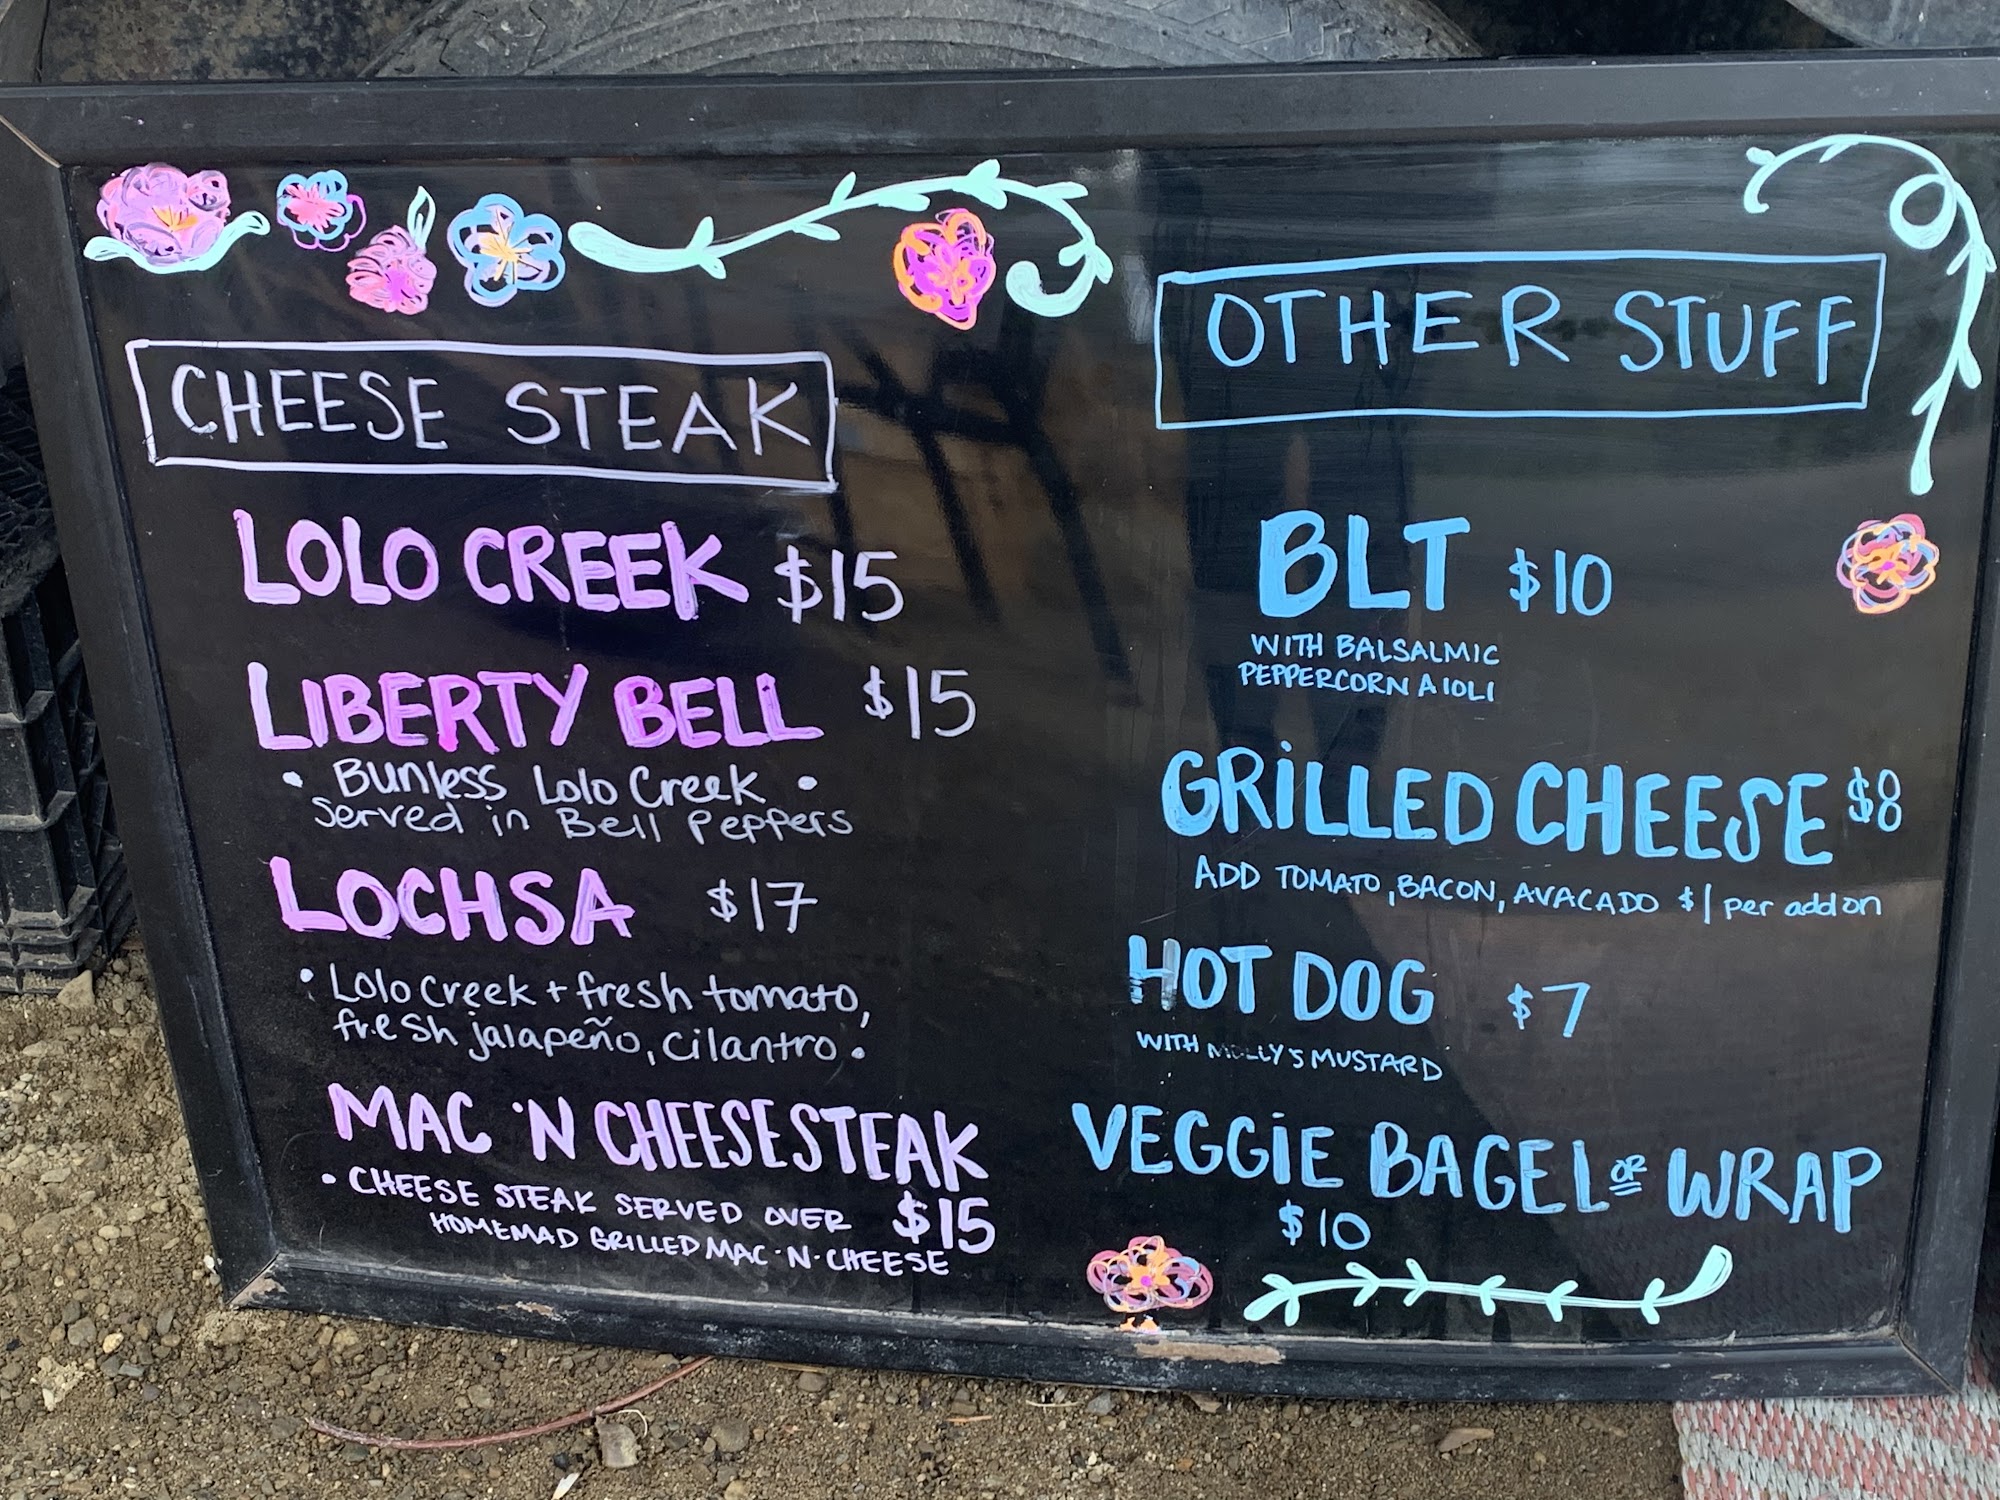 CHEESE STEAK
LOLO CREEK $15
LIBERTY BELL $15
• Bunless Lolo Creek •
served in Bell Peppers
LOCHSA $17
• Lolo Creek + fresh tomato,
fresh jalapeño, cilantro •
MAC 'N CHEESESTEAK
• CHEESE STEAK SERVED OVER $15
HOMEMAD GRILLED MAC·N·CHEESE
OTHER STUFF
BLT $10
WITH BALSALMIC
PEPPERCORN AIOLI
GRILLED CHEESE $8
ADD TOMATO, BACON, AVACADO $1 per add on
HOT DOG $7
WITH MOLLY'S MUSTARD
VEGGIE BAGEL OR WRAP
$10